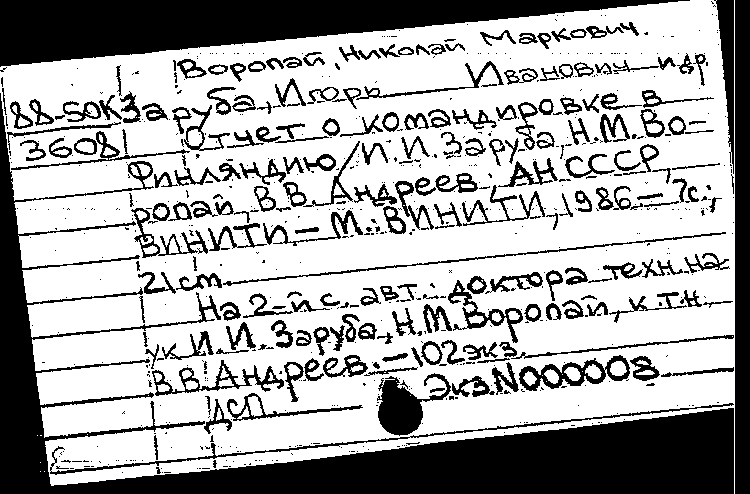 Воропай, Николай Маркович.
88-50К Заруба, Игорь Иванович и др.
3608 Отчет о командировке в
Финляндию / И.И. Заруба, Н.М. Во-
ропай, В.В. Андреев; АН СССР,
ВИНИТИ – М.: ВИНИТИ, 1986 – 7с.;
21 cm.
На 2-й с. авт.: доктора техн. на-
ук И.И. Заруба, Н.М. Воропай, к.т.н.
В.В. Андреев. – 102 экз.
ДСП. Экз N000008